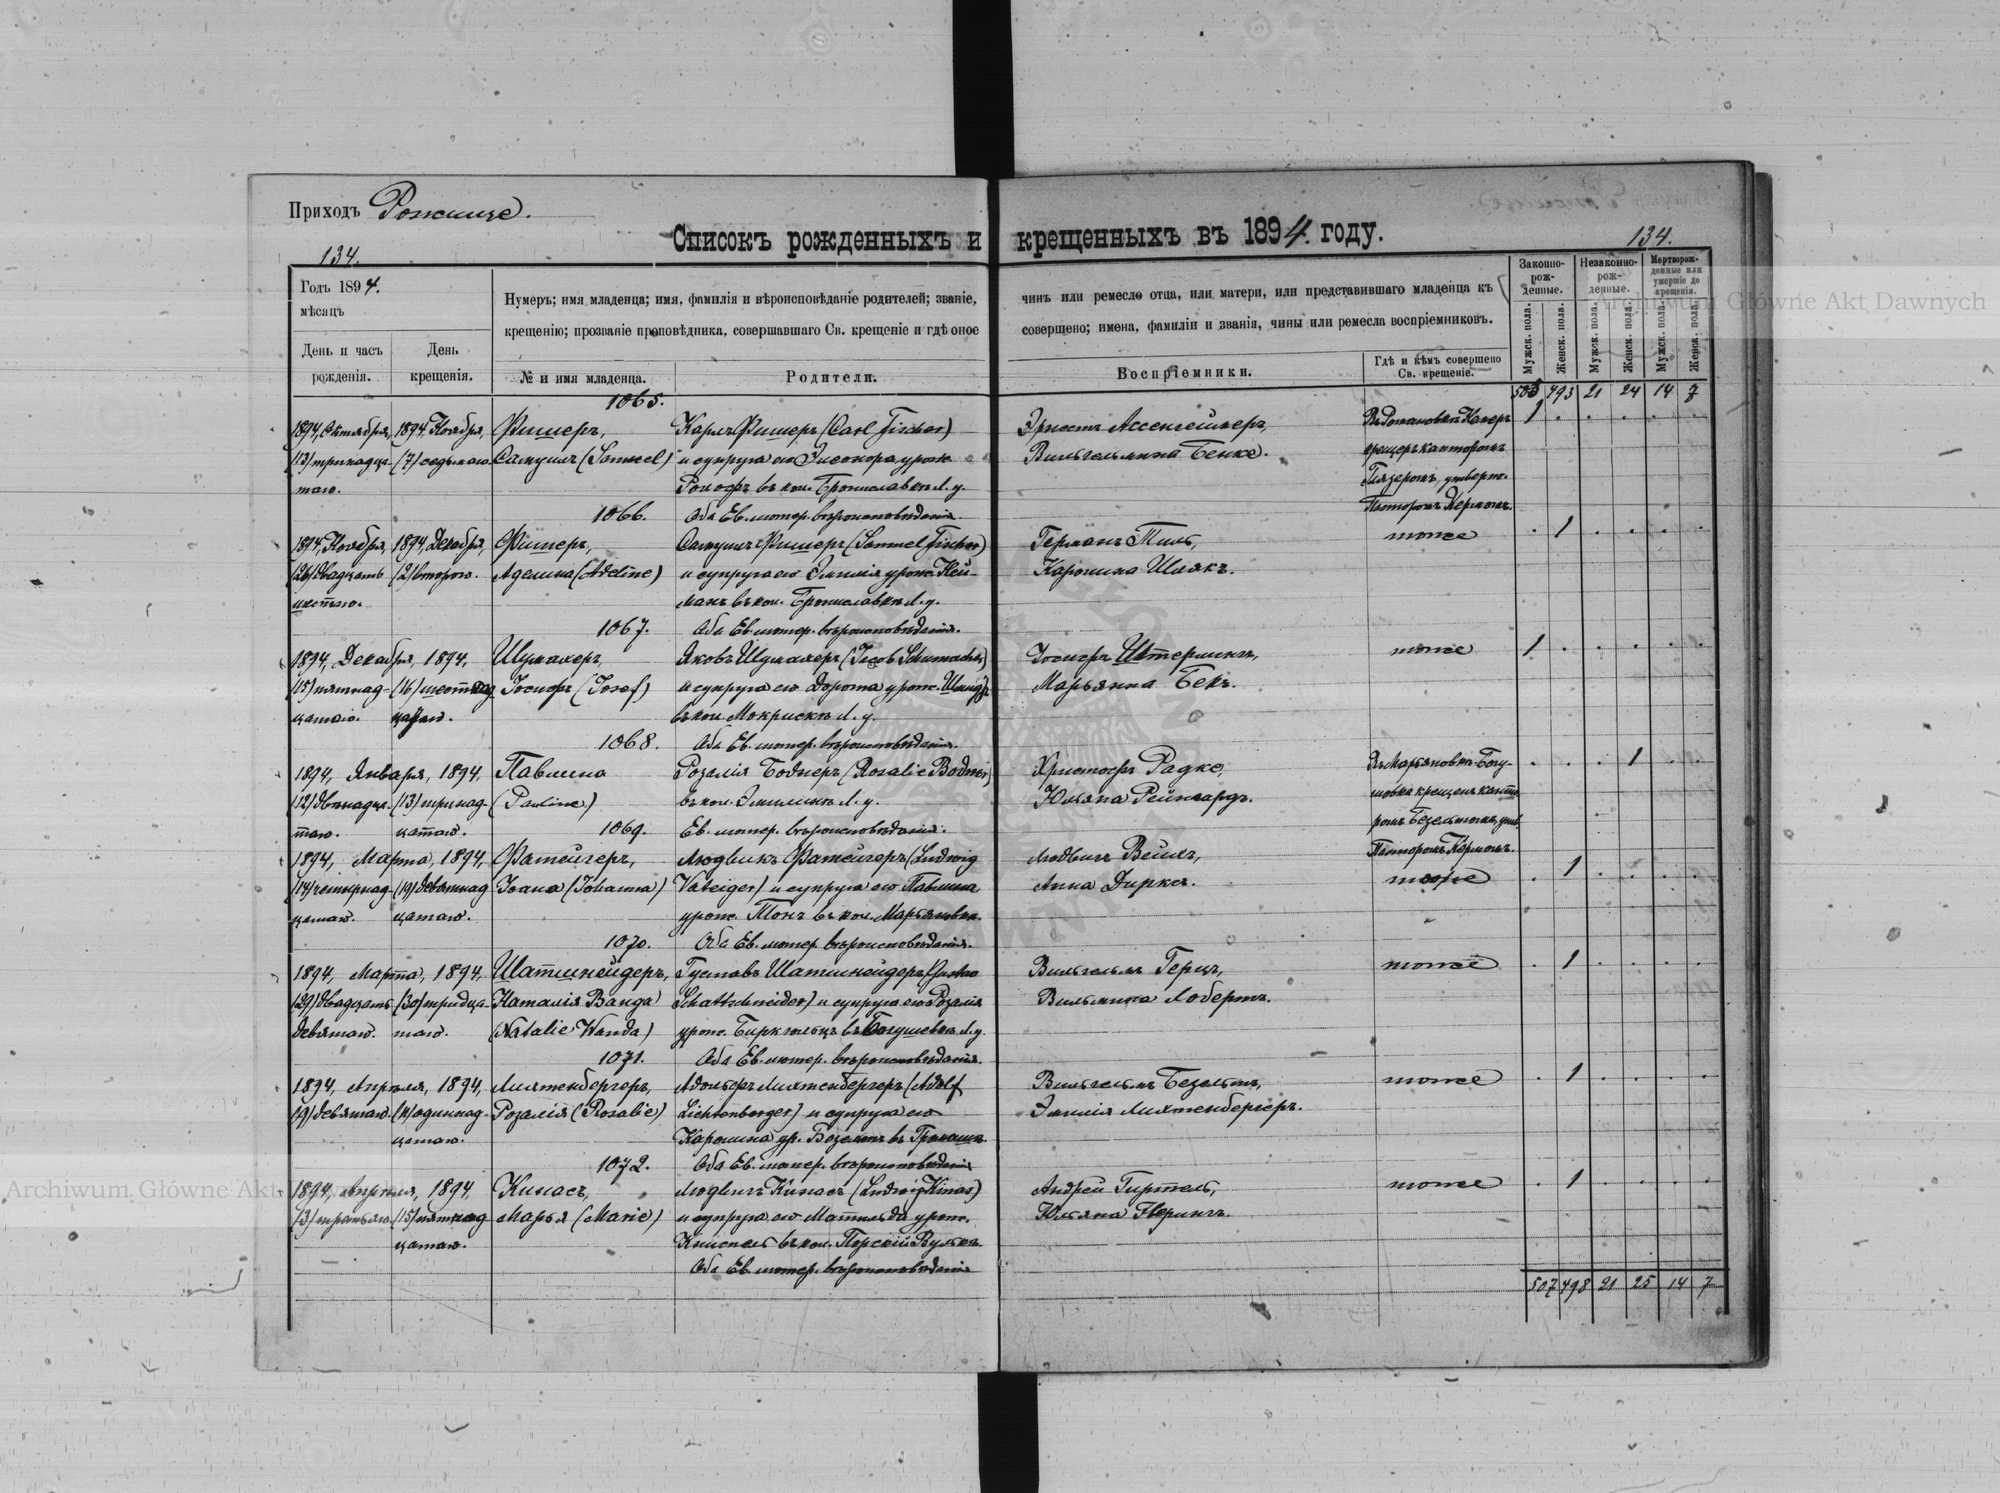 Приходъ Рожище.
Списокъ рожденныхъ и крещенныхъ въ 1894. году.
134.
134.
Годъ 1894.
мѣсяцъ
День и часъ рожденія.
День крещенія.
Нумеръ; имя младенца; имя, фамилія и вѣроисповѣданіе родителей; званіе,
чинъ или ремесло отца, или матери, или представившаго младенца къ
крещенію; прозваніе проповѣдника, совершавшаго Св. крещеніе и гдѣ оное
совершено; имена, фамиліи и званія, чины или ремесла воспріемниковъ.
№ и имя младенца.
Родители.
Воспріемники.
Гдѣ и кѣмъ совершено Св. крещеніе.
Законно-рожденные.
Незаконно-рожденные.
Мертворожденные или умершіе до крещенія.
Мужск. пола.
Женск. пола.
Мужск. пола.
Женск. пола.
Мужск. пола.
Женск. пола.
493 21 24 14 7
1065.
1894, Октября, 1894, Ноября, Фишеръ, Карлъ Фишеръ (Carl Fischer) Эрнстъ Ассенгеймеръ, 1
(13) тринадца- (7) седьмаго. Самуилъ (Samuel) и супруга его Элеонора урож. Вильгельмина Бенке. крещенъ канторомъ
таго. въ кол. Брониславкѣ Л. у. утверж.
1066. Оба Ев. лютер. вѣроисповѣданія. Пасторомъ Керномъ.
1894, Ноября, 1894, Декабря, Фишеръ, Самуилъ Фишеръ (Samuel Fischer) Германъ Тиль, тоже 1
(26) двадцать (2) втораго. Аделина (Adeline) и супруга его Эмилія урож. Ней- Каролина Шлякъ.
шестаго. манъ въ кол. Брониславкѣ Л. у.
1067. Оба Ев. лютер. вѣроисповѣданія.
1894, Декабря, 1894, Шумахеръ, Яковъ Шумахеръ (Jacob Schumacher) Іосифъ тоже 1
(15) пятнад- (16) шестнад Іосифъ (Josef) и супруга его Дорота урож. Марьянна Бекъ.
цатаго. цатаго. въ кол. Л. у.
1068. Оба Ев. лютер. вѣроисповѣданія.
1894, Января, 1894, Павлина Розалія Боднеръ (Rosalie Bodner) Христофъ Радке, Въ Марьяновкѣ Богу- 1
(12) двѣнадца- (13) тринад- (Pauline) въ кол. Эмилинѣ Л. у. Юліана Рейнгардъ. шовка крещенъ канто
таго. цатаго. 1069. Ев. лютер. вѣроисповѣданія. ромъ Безельтомъ, утв.
1894, Марта, 1894, Фатейгеръ, Людвикъ Фатейгеръ (Ludwig Людвигъ Вейхъ, Пасторомъ Керномъ. 1
(14) четырнад- (19) девятнад Іоана (Johanna) Vateiger) и супруга его Павлина Анна Диркъ. тоже
цатаго. цатаго. урож. Тонъ въ кол. Марьяновкѣ.
1070. Оба Ев. лютер. вѣроисповѣданія.
1894, Марта, 1894, Шатшнейдеръ, Густавъ Шатшнейдеръ (Gustav Вильгельмъ Герцъ, тоже 1
(29) двадцать (30) тридца- Наталія Ванда Schattschneider) и супруга его Розалія Вильмина Лобертъ.
девятаго. таго. (Natalie Wanda) урож. Биркгольцъ въ Богушевкѣ Л. у.
1071. Оба Ев. лютер. вѣроисповѣданія.
1894, Апрѣля, 1894, Лихтенбергеръ, Адольфъ Лихтенбергеръ (Adolf Вильгельмъ Безельтъ, тоже 1
(9) девятаго. (11) одиннад- Розалія (Rosalie) Lichtenberger) и супруга его Эмилія Лихтенбергеръ.
цатаго. Каролина ур. въ
1072. Оба Ев. лютер. вѣроисповѣданія
1894, Апрѣля, 1894 Кинасъ, Людвигъ Кинасъ (Ludwig Kinas) Андрей Гиртель, тоже 1
(3) третьяго (15) пятнад Марья (Marie) и супруга его Матильда урож. Юліана Нерингъ.
цатаго. въ кол. Вулькѣ.
Оба Ев. лютер. вѣроисповѣданія
507 498 21 25 14 7
Archiwum Główne Akt Dawnych
Archiwum Główne Akt Dawnych